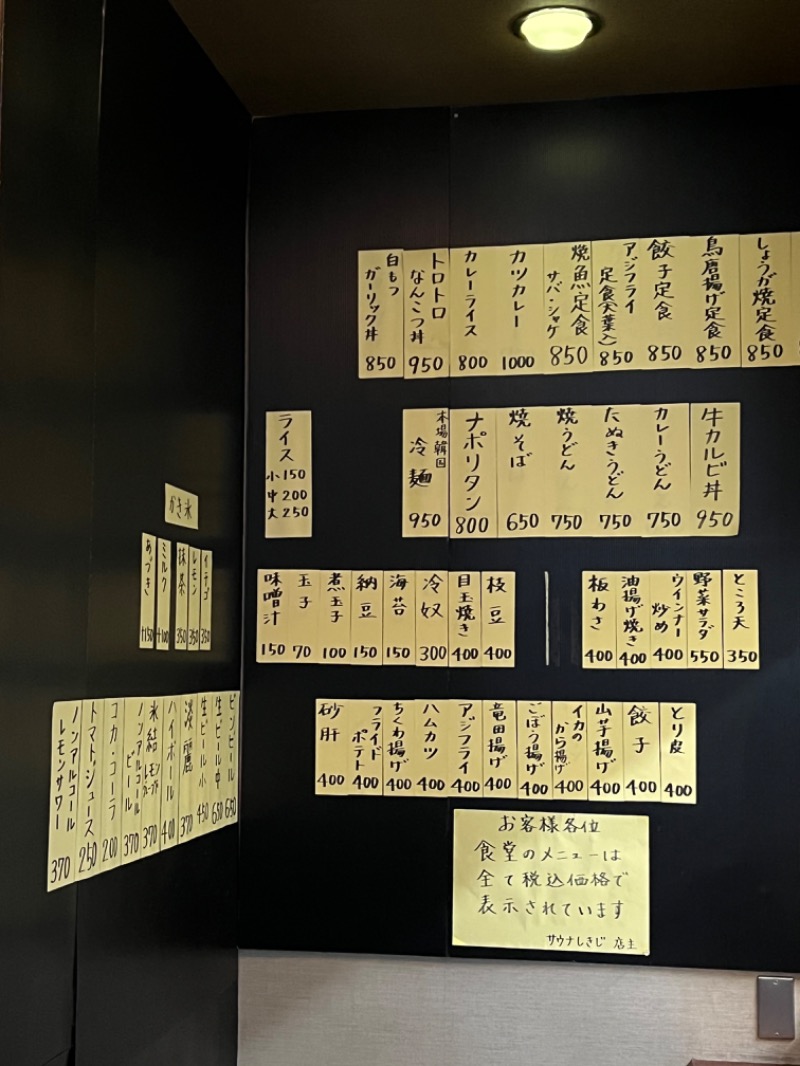 しょうが焼定食
850
鳥唐揚げ定食
850
餃子定食
850
アジフライ
定食(大葉入)
850
焼魚定食
サバ・シャケ
850
カツカレー
1000
カレーライス
800
トロトロ
なんこつ丼
950
白もつ
ガーリック丼
850
牛カルビ丼
950
カレーうどん
750
たぬきうどん
750
焼うどん
750
焼そば
650
ナポリタン
800
本場韓国
冷麺
950
ライス
小150
中200
大250
ところ天
350
野菜サラダ
550
ウインナー
炒め
400
油揚げ焼き
400
板わさ
400
枝豆
400
目玉焼き
400
冷奴
300
海苔
150
納豆
150
煮玉子
100
玉子
70
味噌汁
150
とり皮
400
餃子
400
山芋揚げ
400
イカの
から揚げ
400
ごぼう揚げ
400
竜田揚げ
400
アジフライ
400
ハムカツ
400
ちくわ揚げ
400
フライド
ポテト
400
砂肝
400
お客様各位
食堂のメニューは
全て税込価格で
表示されています
サウナしきじ 店主
かき氷
イチゴ
350
レモン
350
抹茶
350
ミルク
+100
あづき
+150
ビンビール
650
生ビール中
650
生ビール小
450
淡麗
370
ハイボール
400
氷結 レモン
370
ノンアルコール
ビール
370
コカ・コーラ
200
トマトジュース
250
ノンアルコール
レモンサワー
370